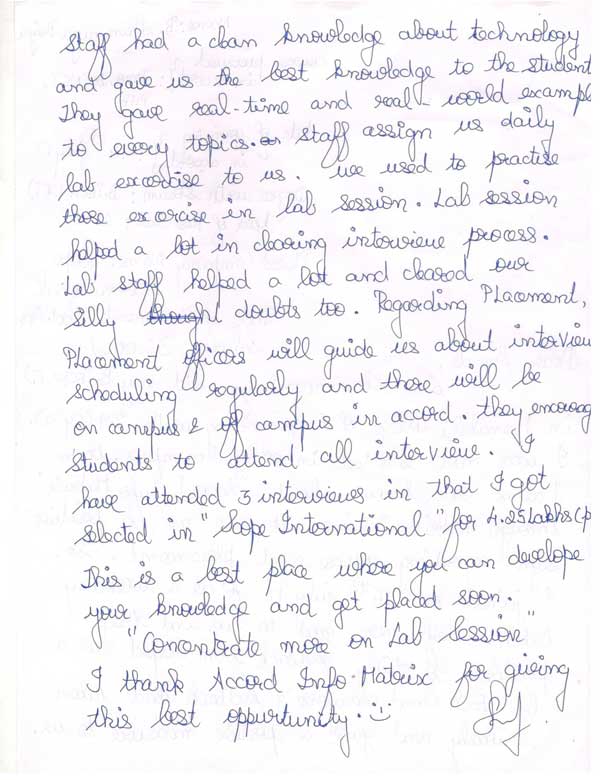 staff had a clean knowledge about technology
and gave us the best knowledge to the student
They gave real-time and real-world exampl
to every topics. staff assign us daily
lab excercise to us. we used to practise
those exercise in lab session. Lab session
helped a lot in clearing interview process.
Lab staff helped a lot and cleared our
silly thought doubts too. Regarding Placement,
Placement officers will guide us about interview
scheduling regularly and there will be
on campus & off campus in accord. they encourag
students to attend all interview. I
have attended 3 interviews in that I got
selected in "Scope International" for 4.25 Lakhs(p
This is a best place where you can develope
your knowledge and get placed soon.
"Concentrate more on Lab Session"
I thank Accord Info Matrix for giving
this best oppurtunity. :)